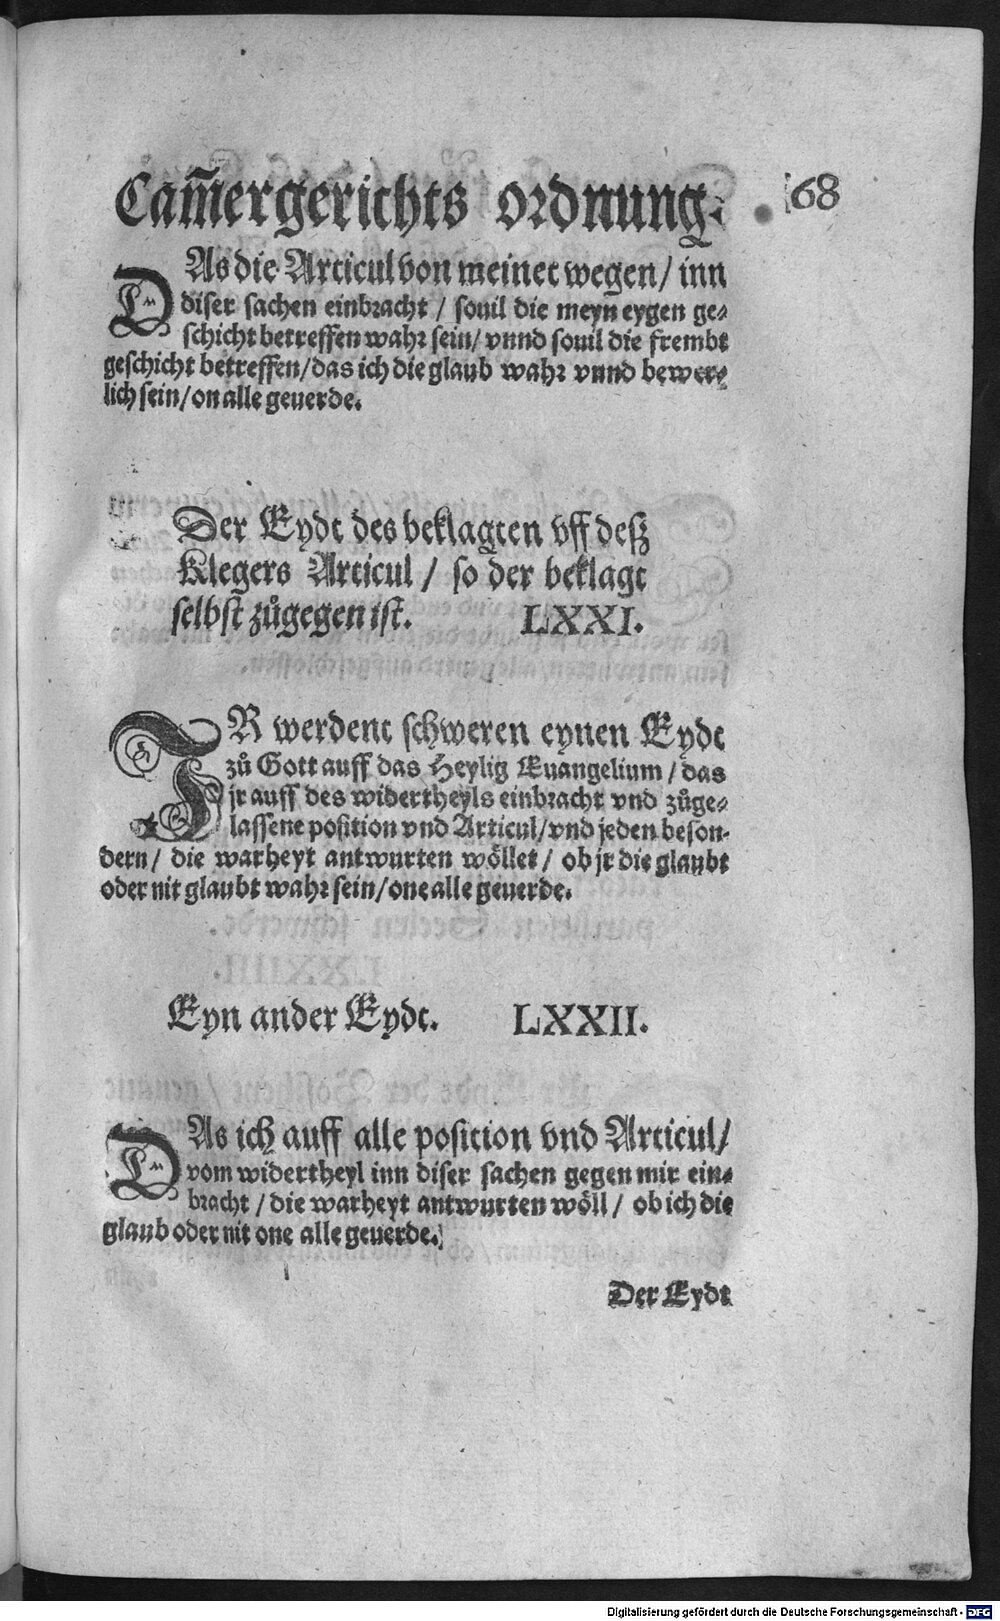 Cam̄ergerichts ordnung. 68
DAs die Articul von meinet wegen / inn
diser sachen einbracht / souil die meyn eygen ge-
schicht betreffen wahr sein / vnnd souil die frembt
geschicht betreffen / das ich die glaub wahr vnnd bewer-
lich sein / on alle geuerde.
Der Eydt des beklagten vff desz
Klegers Articul / so der beklagt
selbst zůgegen ist. LXXI.
IR werdent schweren eynen Eydt
zů Gott auff das Heylig Euangelium / das
jr auff des widertheyls einbracht vnd zůge-
lassene position vnd Articul / vnd jeden beson-
dern / die warheyt antwurten wöllet / ob jr die glaubt
oder nit glaubt wahr sein / one alle geuerde.
Eyn ander Eydt. LXXII.
DAs ich auff alle position vnd Articul /
vom widertheyl inn diser sachen gegen mir ein-
bracht / die warheyt antwurten wöll / ob ich die
glaub oder nit one alle geuerde.
Der Eydt
Digitalisierung gefördert durch die Deutsche Forschungsgemeinschaft - DFG